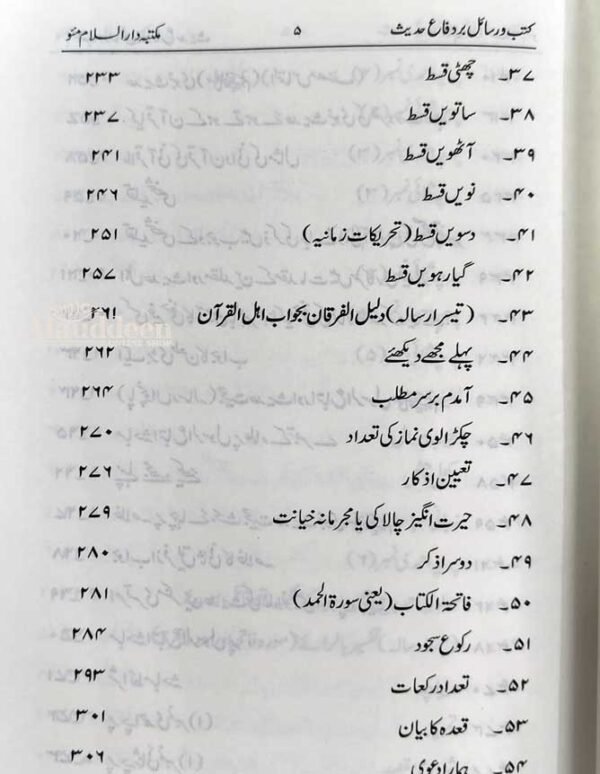 کتب و رسائل بر دفاع حدیث ۵ مکتبہ دارالسلام مئو
۳۷۔ چھٹی قسط ۲۳۳
۳۸۔ ساتویں قسط ۲۳۷
۳۹۔ آٹھویں قسط ۲۴۱
۴۰۔ نویں قسط ۲۴۶
۴۱۔ دسویں قسط (تحریکات زمانیہ) ۲۵۱
۴۲۔ گیارہویں قسط ۲۵۷
۴۳۔ (تیسرا رسالہ) دلیل الفرقان بجواب اہل القرآن ۲۶۱
۴۴۔ پہلے مجھے دیکھئے ۲۶۲
۴۵۔ آمدم برسر مطلب ۲۶۴
۴۶۔ چکڑالوی نماز کی تعداد ۲۷۰
۴۷۔ تعیین اذکار ۲۷۶
۴۸۔ حیرت انگیز چالاکی یا مجرمانہ خیانت ۲۷۹
۴۹۔ دوسرا ذکر ۲۸۰
۵۰۔ فاتحۃ الکتاب (یعنی سورۃ الحمد) ۲۸۱
۵۱۔ رکوع سجود ۲۸۴
۵۲۔ تعداد رکعات ۲۹۳
۵۳۔ قعدہ کا بیان ۳۰۱
۵۴۔ ہمارا دعویٰ ۳۰۶
Alauddeen